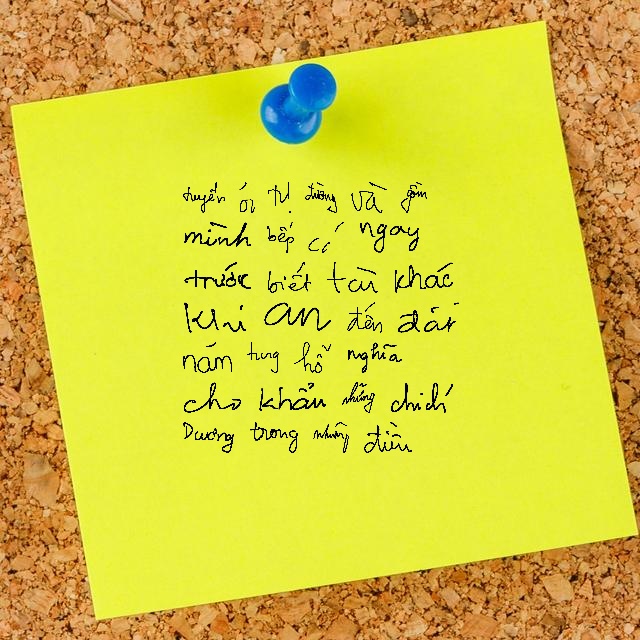 tuyến ới tự đường và gồm
mình bếp cí ngay
trước biết tài khác
khi an đến dài
nám tung hỗ nghĩa
cho khẩu những chích
Dương trong những điều